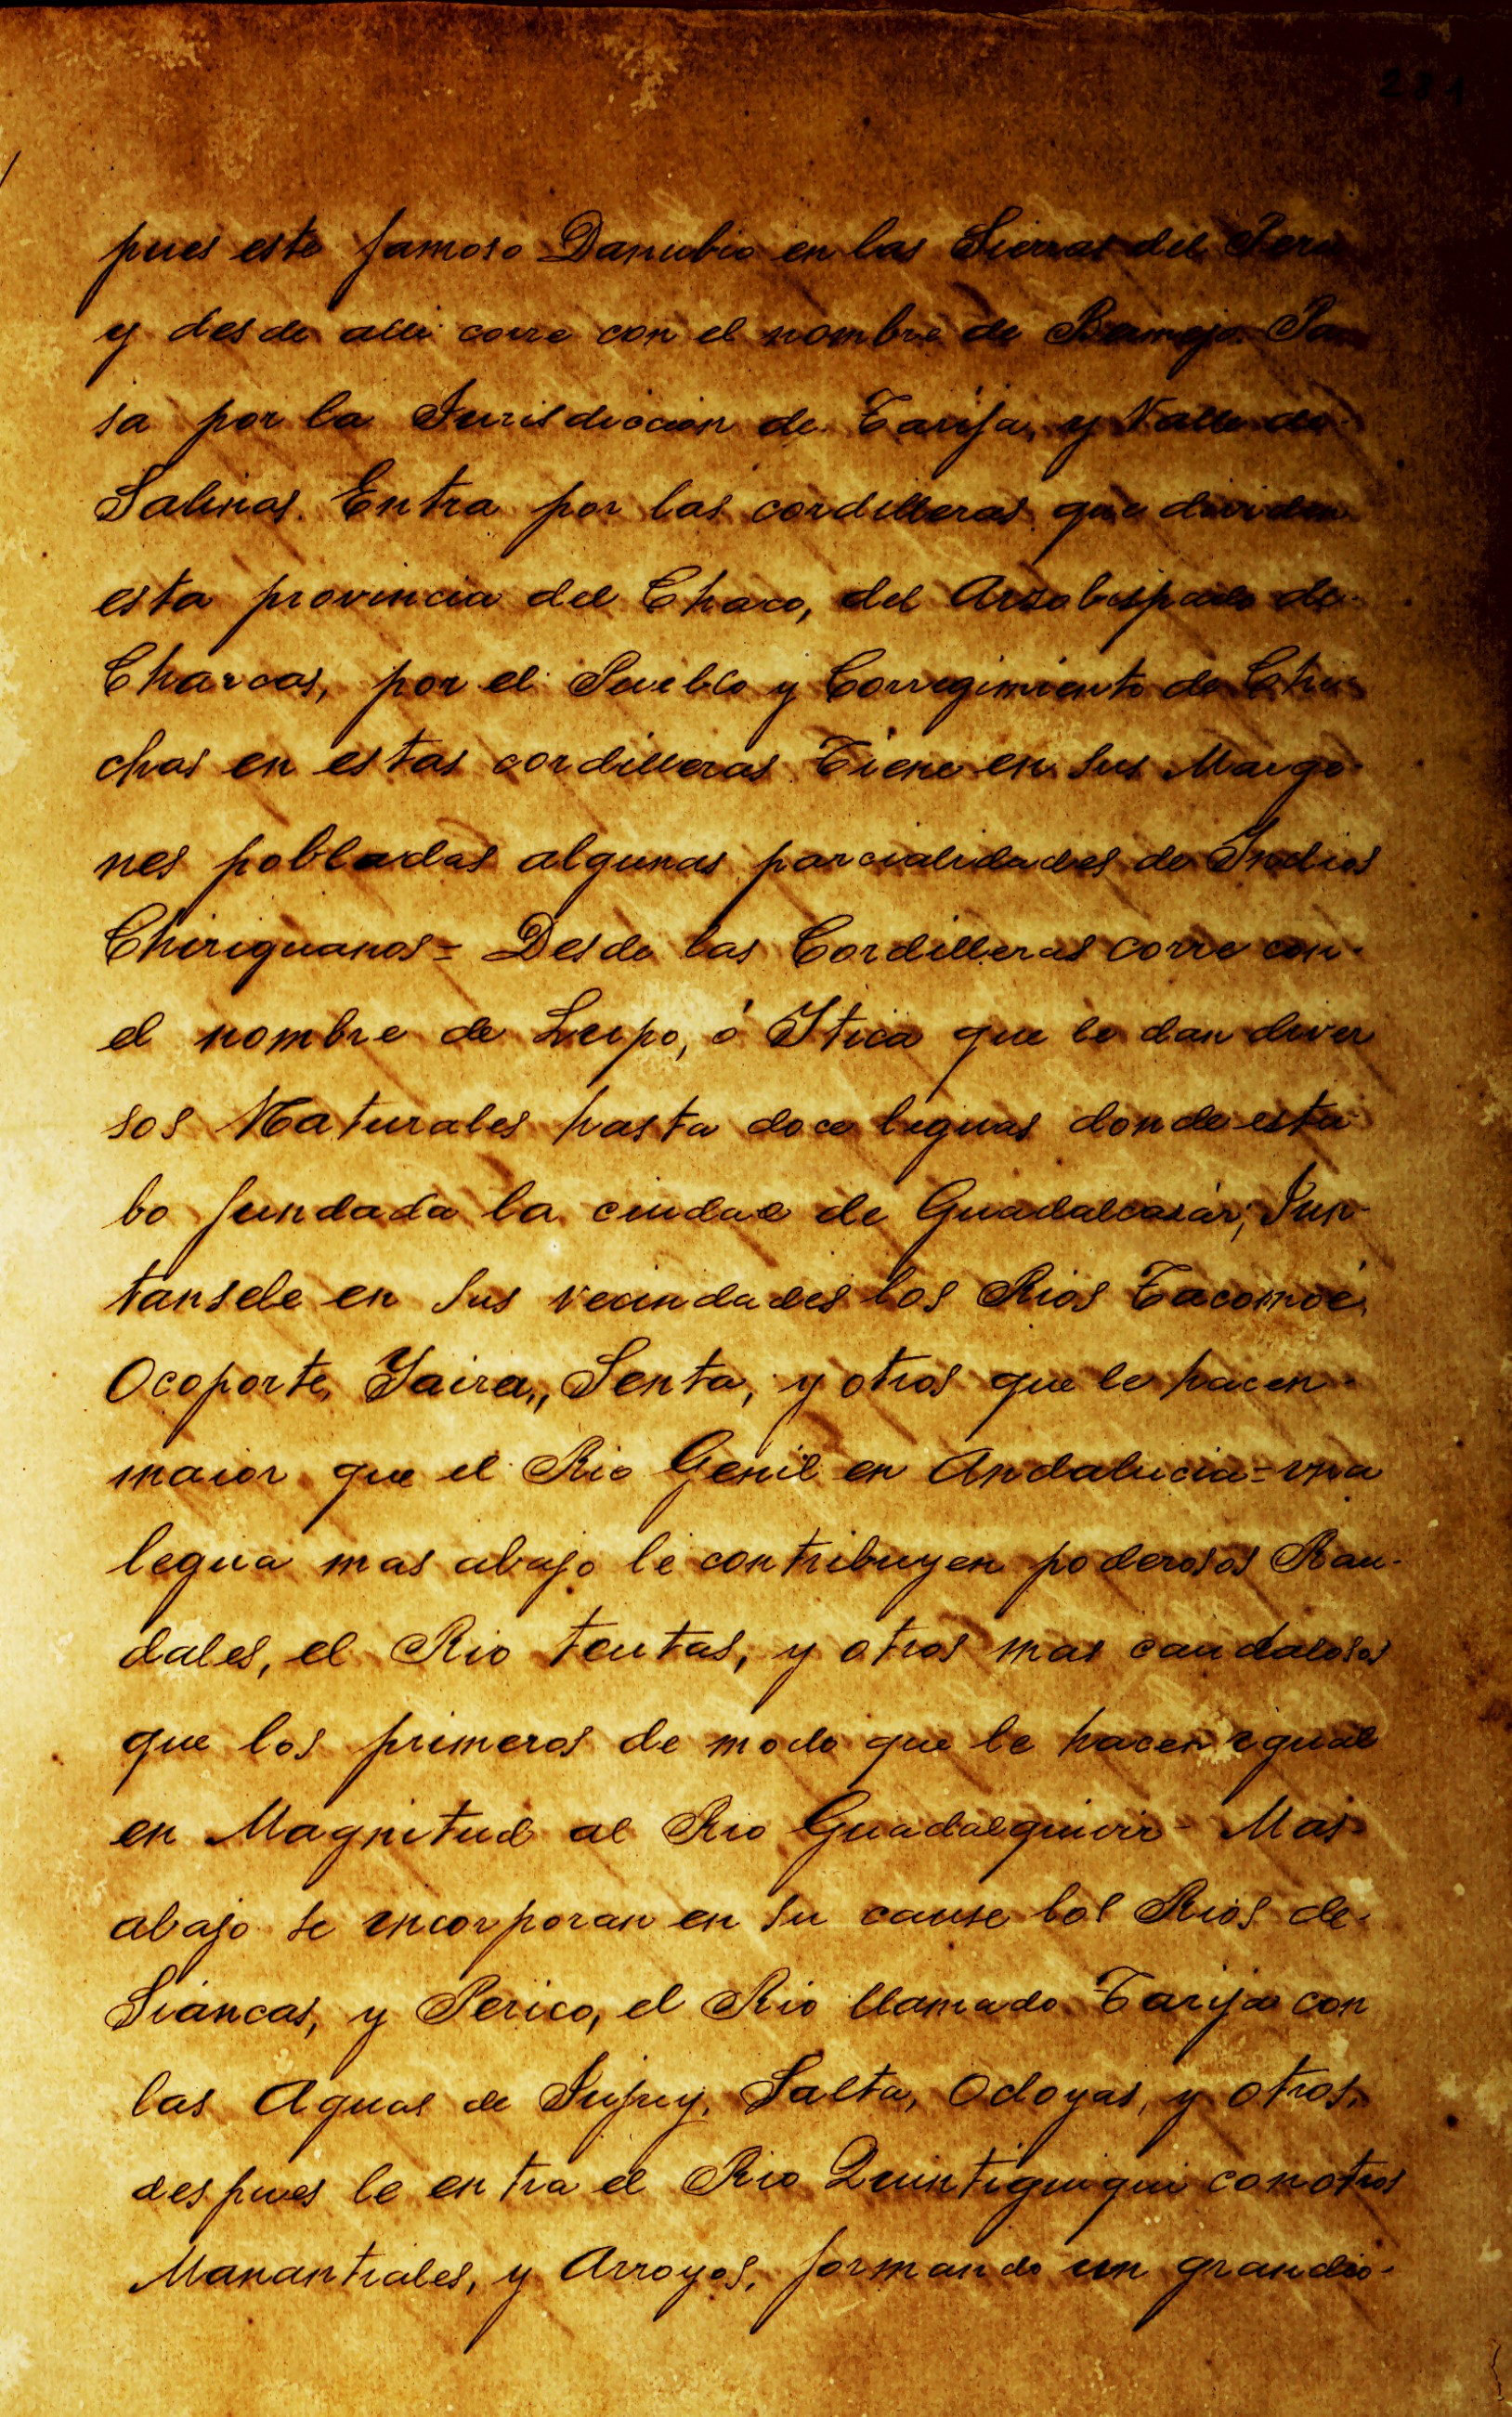 281
pues este famoso Danubio en las Sierras del Peru
y desde alli corre con el nombre de Bermejo. Pa-
sa por la Jurisdiccion de Tarija, y Valle de
Salinas. Entra por las cordilleras que dividen
esta provincia del Chaco, del Arzobispado de
Charcas, por el Pueblo y Corregimiento de Chi-
chas en estas cordilleras Tiene en sus Marge-
nes pobladas algunas parcialidades de Indios
Chiriguanos= Desde las Cordilleras corre con
el nombre de Lupo, ó Itica que le dan diver
sos Naturales hasta doce leguas donde estu
bo fundada la ciudad de Guadalcasár; Jun-
tansele en sus vecindades los Rios Tacomoé,
Ocoporte, Yaira,, Senta, y otros que le hacen
maior que el Rio Genil en Andalucia=vna
legua mas abajo le contribuyen poderosos Rau-
dales, el Rio teutas, y otros mas caudalosos
que los primeros de modo que le hacen igual
en Magnitud al Rio Guadalquivir- Mas
abajo se incorporan en su cause los Rios de
Siancas, y Perico, el Rio llamado Tarija con
las Aguas de Jujuy, Salta, Ocloyas, y otros,
despues le entra el Rio Quintiguigui con otros
Manantiales, y Arroyos, formando un grandio-